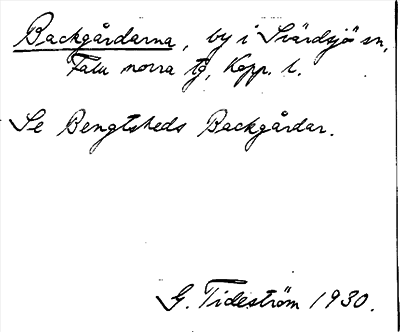 Backgårdarna, by i Svärdsjö sn,
Falu norra tg, Kopp. l.
Se Bengtsheds Backgårdar.
G. Tideström 1930.